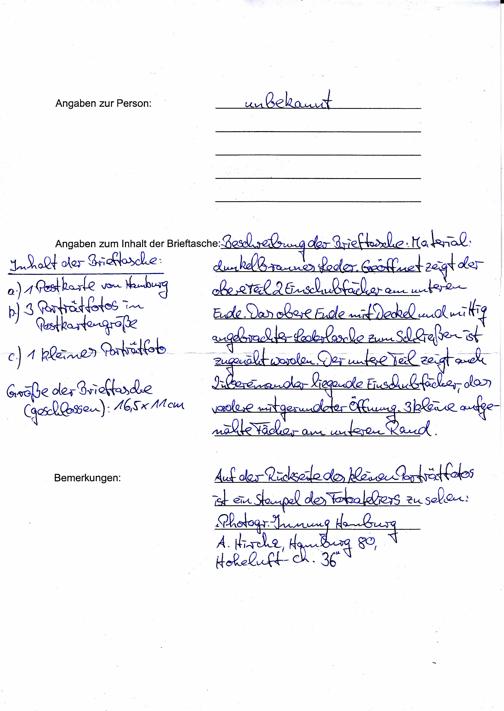 Angaben zur Person: unbekannt
Angaben zum Inhalt der Brieftasche: Beschreibung der Brieftasche. Material:
dunkelbraunes Leder. Geöffnet zeigt der
obere Teil 2 Einschubfächer am unteren
Ende. Das obere Ende mit Deckel und mittig
angebrachter Lederlasche zum Schließen ist
zugenäht worden. Der untere Teil zeigt auch
2 übereinander liegende Einschubfächer, das
vordere mit gerundeter Öffnung. 3 kleine aufge-
nähte Fächer am unteren Rand.
Inhalt der Brieftasche:
a.) 1 Postkarte von Hamburg
b) 3 Porträtfotos in
Postkartengröße
c.) 1 kleines Porträtfoto
Größe der Brieftasche
(geschlossen): 16,5 x 11 cm
Bemerkungen: Auf der Rückseite des kleinen Porträtfotos
ist ein Stempel des Fotoateliers zu sehen:
"Photogr.-Innung Hamburg
A. Hirche, Hamburg 80,
Hoheluft-Ch. 36"